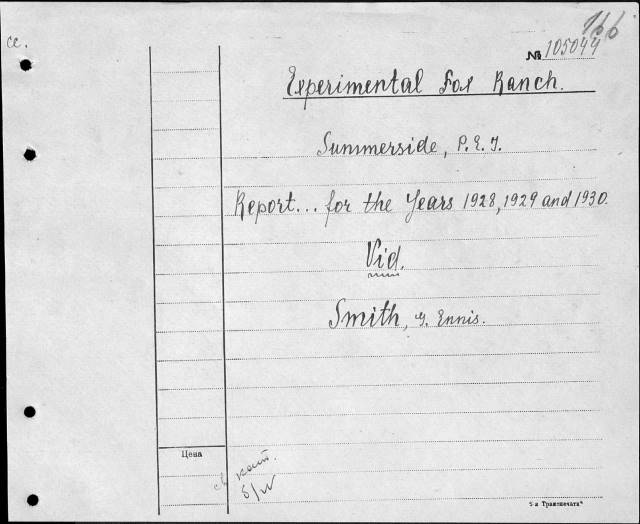 166
се.
№ 105044
Experimental Fox Ranch.
Summerside, P.E.I.
Report... for the Years 1928, 1929 and 1930.
Vid.
Smith, G. Ennis.
Цена
5-я Транспечать"